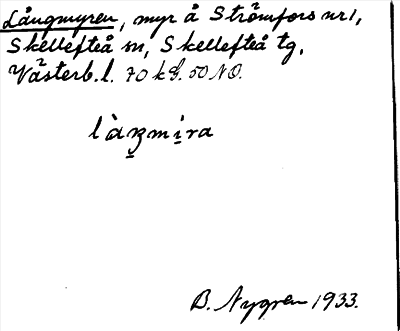 Långmyren, myr å Strömfors nr 1,
Skellefteå sn, Skellefteå tg,
Västerb. l. 70 kS. 50 NO.
B. Nygren 1933.